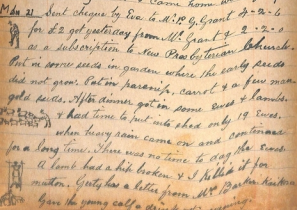 Mon 21 Sent cheque by Eva to Mr P. G. Grant 4-2-6
for £2 got yesterday from Mr Grant & 2-2-0
as a subscription to New Presbyterian Church.
Put in some seeds in garden where the early seeds
did not grow. Put in parsnip, carrot & a few man
gold seeds. After dinner got in some ewes & lambs.
& had time to put into shed only 19 ewes.
when heavy rain came on and continued
for a long time. There was no time to dag the ewes.
A lamb had a hip broken & I killed it for
mutton. Gerty has a letter from Mrs Barker
Gave the young calf a drink